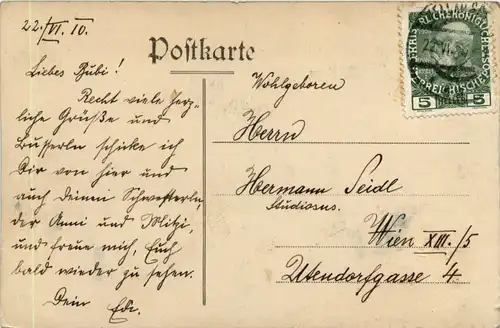 22./VI. 10.
Liebes Bubi!
Recht viele herz-
liche Grüße und
Busserln schicke ich
Dir von hier und
auch deinen Schwesterln,
der Anni und Mitzi,
und freue mich, Euch
bald wieder zu sehen.
Dein Edi.
Postkarte
Wohlgeboren
Herrn
Hermann Seidl
Studiosus.
Wien XIII./5
Utendorfgasse 4
5 HELLER 5